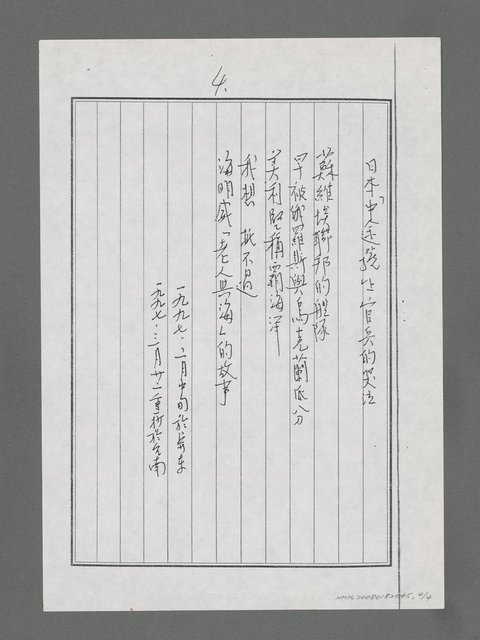 4.
日本「中途號」官兵的哭泣
蘇維埃聯邦的艦隊
早被俄羅斯與烏克蘭瓜分
美利堅稱霸海洋
我想 抵不過
海明威「老人與海」的故事
一九九七.二月中旬於屏東
一九九七.三月廿二重抄於台南
NMTL20080182045, 4/4